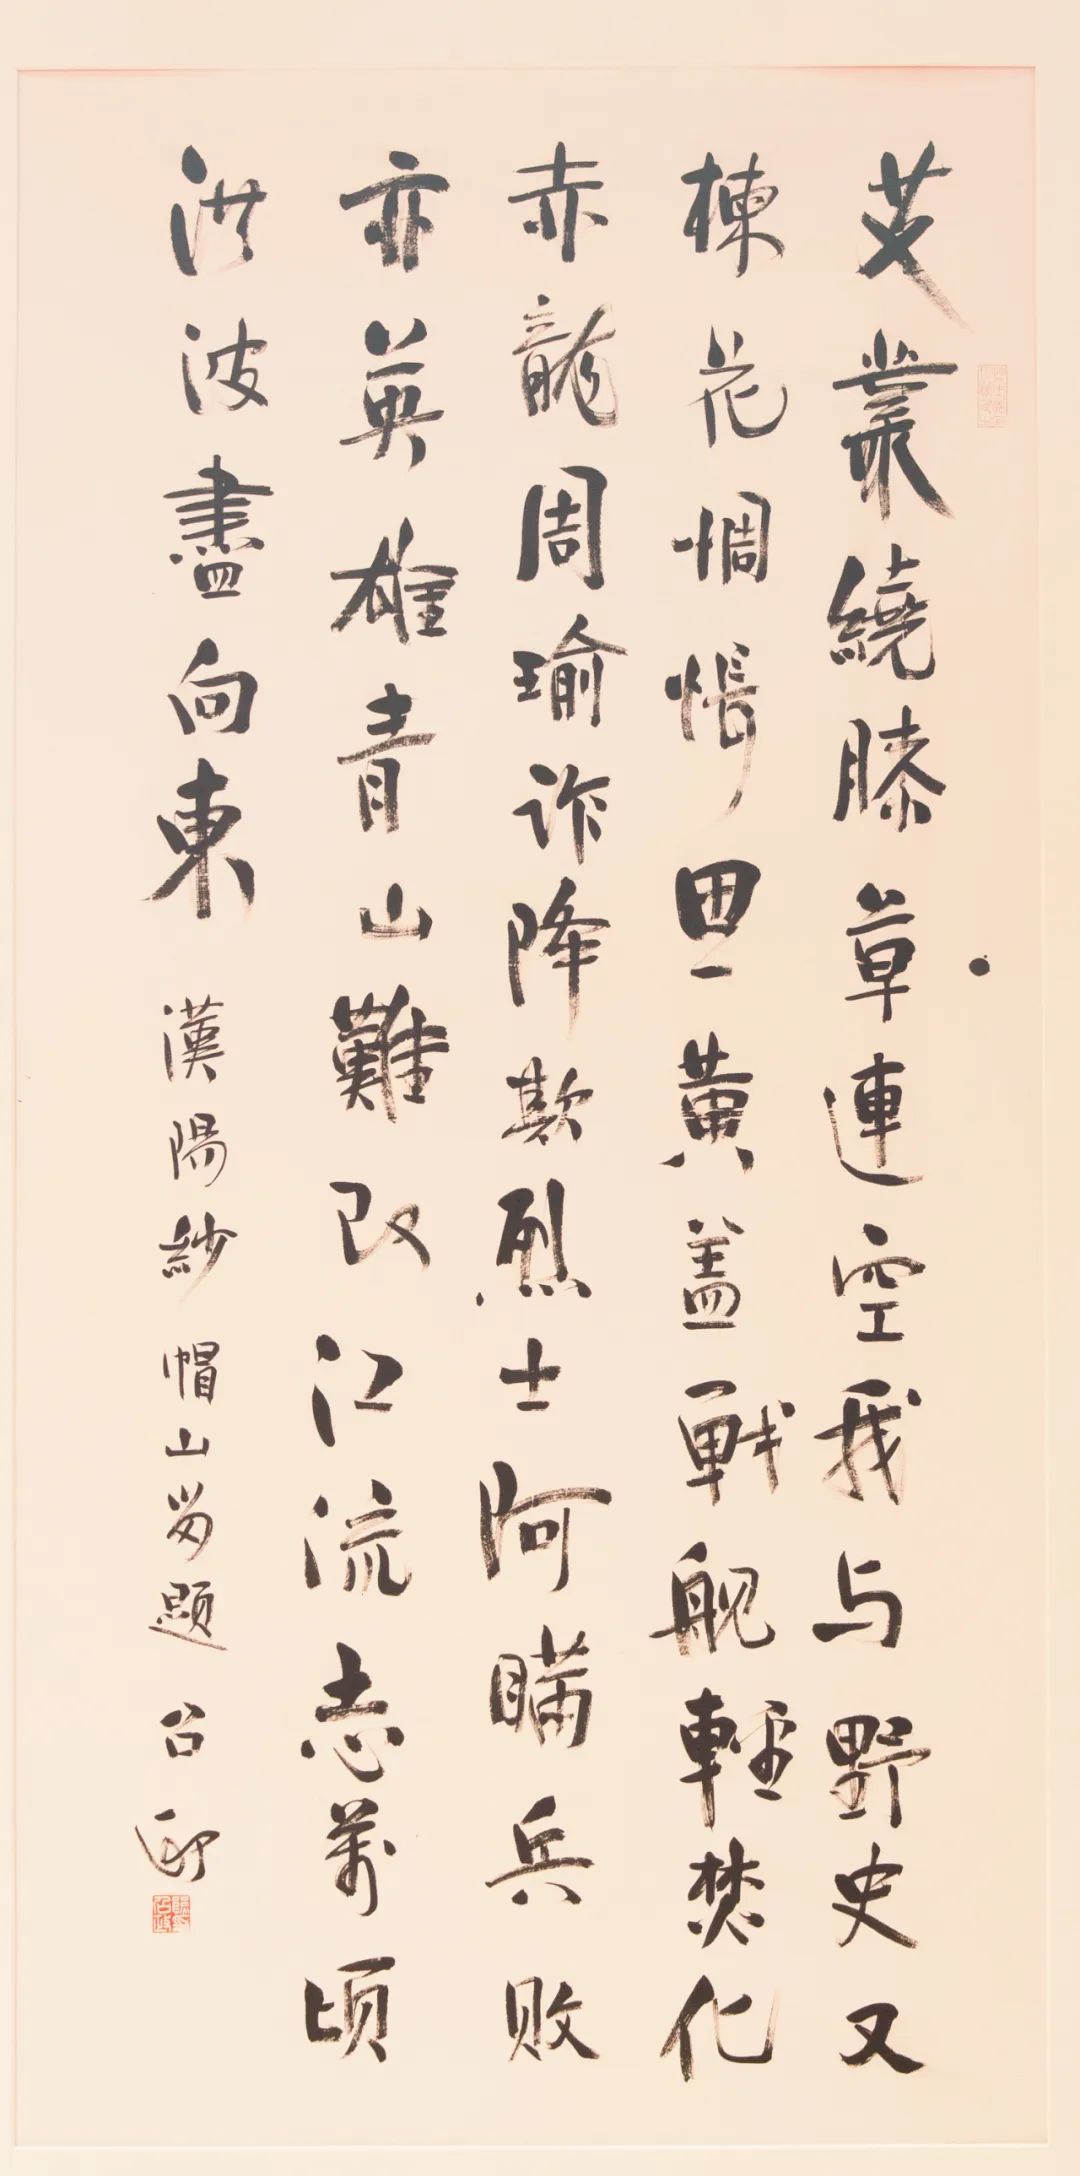 艾叢繞膝草連空我与野史又
楝花惆悵黄盖戰舰輕焚化
赤龍周瑜詐降欺烈士阿瞞兵敗
亦英雄青山難改江流志萬頃
洪波盡向東 漢陽紗帽山留題